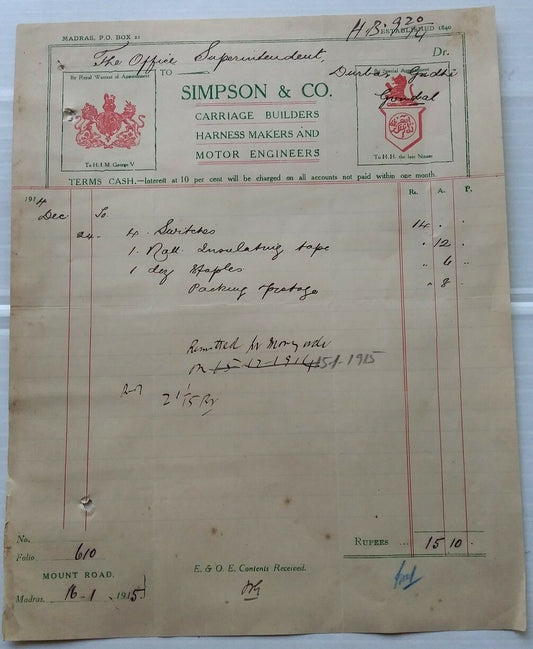 MADRAS, P.O. BOX 21
H.B. 920/14
ESTABLISHED 1840
The Office Superintendent,
Dr.
By Royal Warrant of Appointment
TO
Durbar Gadhi
By Special Appointment
Gondal
SIMPSON & CO.
CARRIAGE BUILDERS
HARNESS MAKERS AND
MOTOR ENGINEERS
To H.I.M. George V
To H.H. the late Nizam
TERMS CASH.—Interest at 10 per cent will be charged on all accounts not paid within one month.
Rs. A. P.
1914
Dec To
24. 4. Switches 14 . .
1. Roll Insulating tape " 12 .
1 doz Staples " 6 "
Packing postage " 8 .
Remitted by Money order
on 15-12-1914 15-1-1915
No.
Folio 610
RUPEES ... 15 10 .
MOUNT ROAD.
E. & O. E. Contents Received.
Madras, 16-1-1915